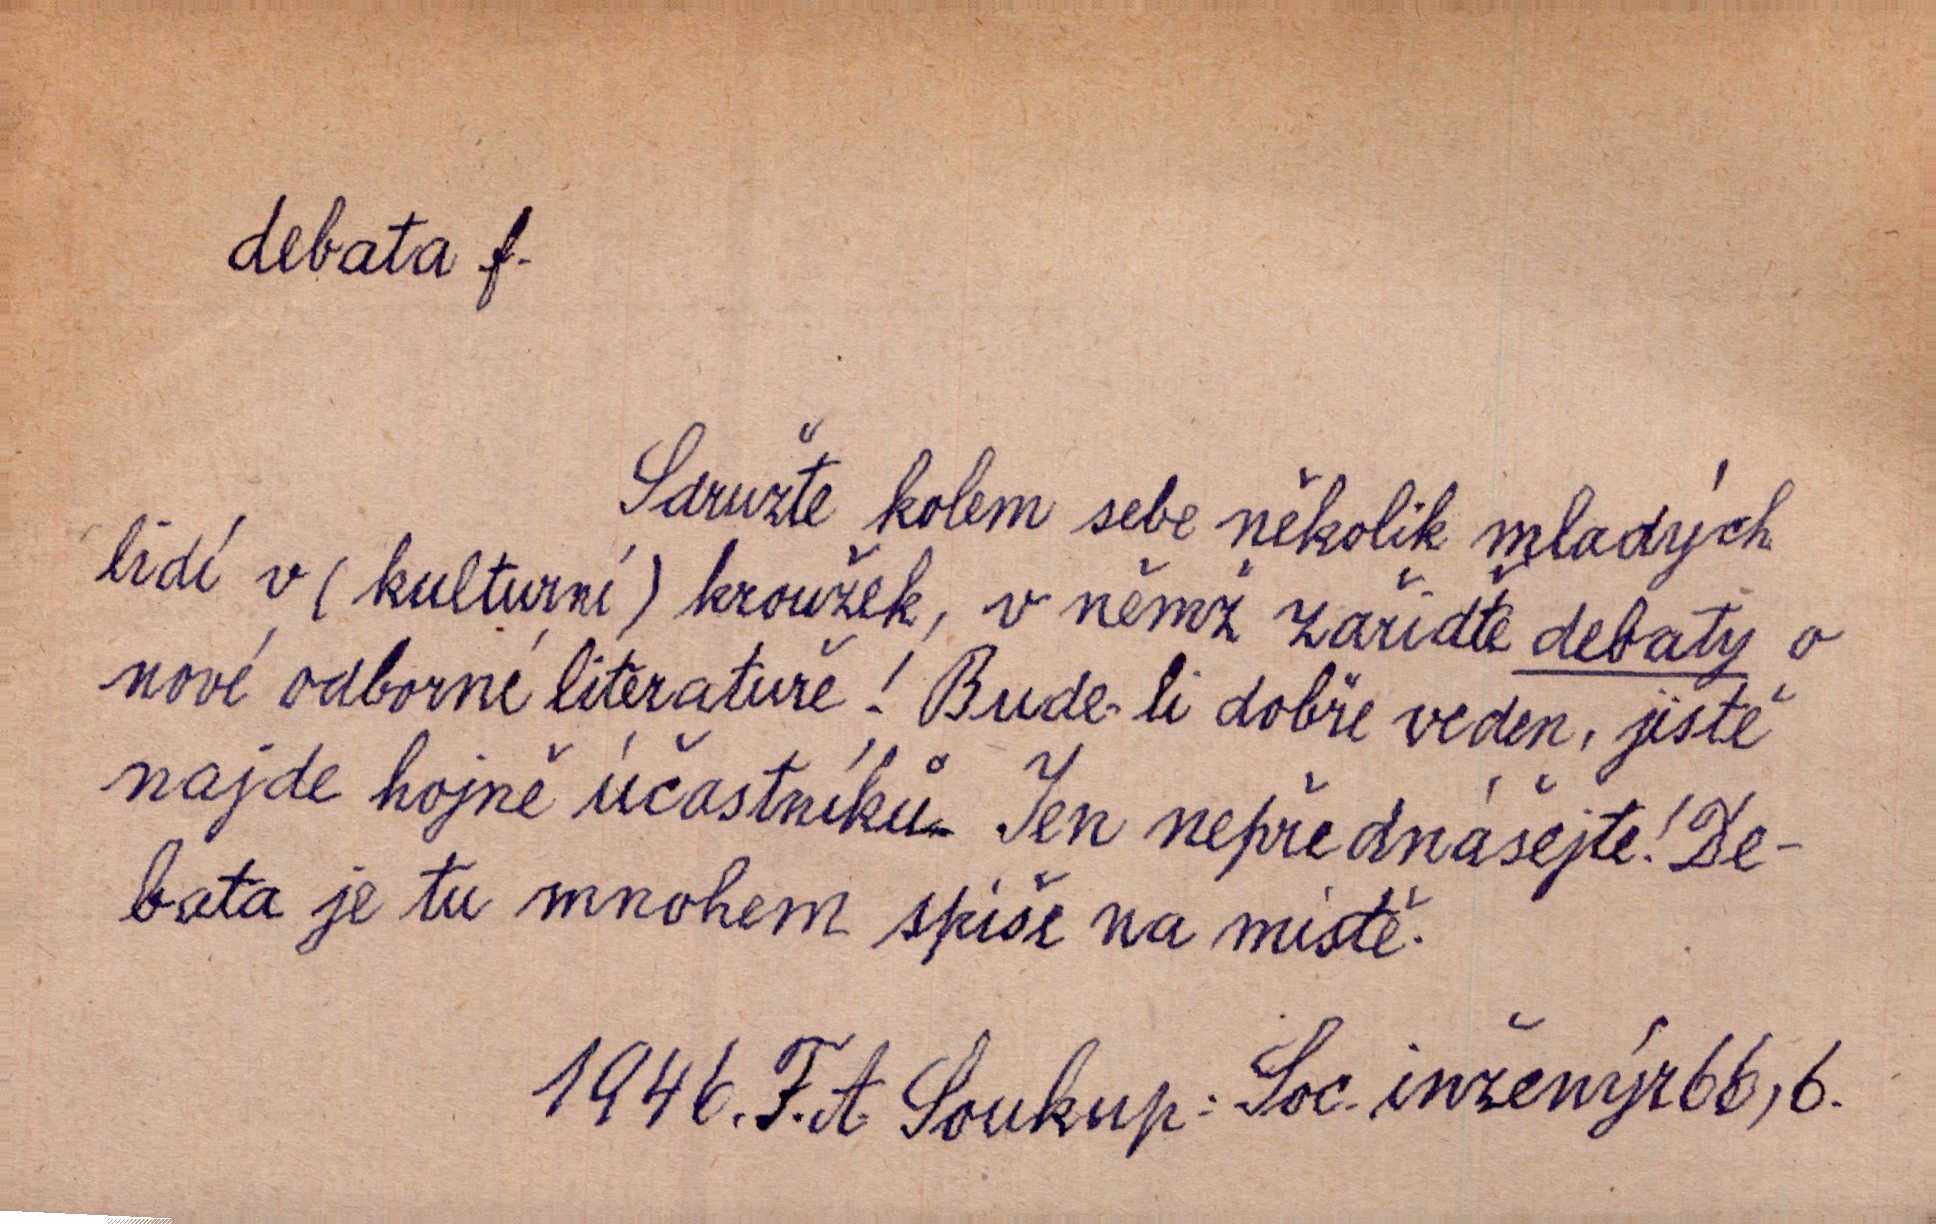 debata f.
Sdružte kolem sebe několik mladých
lidí v (kulturní) kroužek, v němž zařiďte debaty o
nové odborné literatuře! Bude-li dobře veden, jistě
najde hojně účastníků. Jen nepřednášejte! De-
bata je tu mnohem spíše na místě.
1946. F. A. Soukup: Soc. inženýr 66, 6.